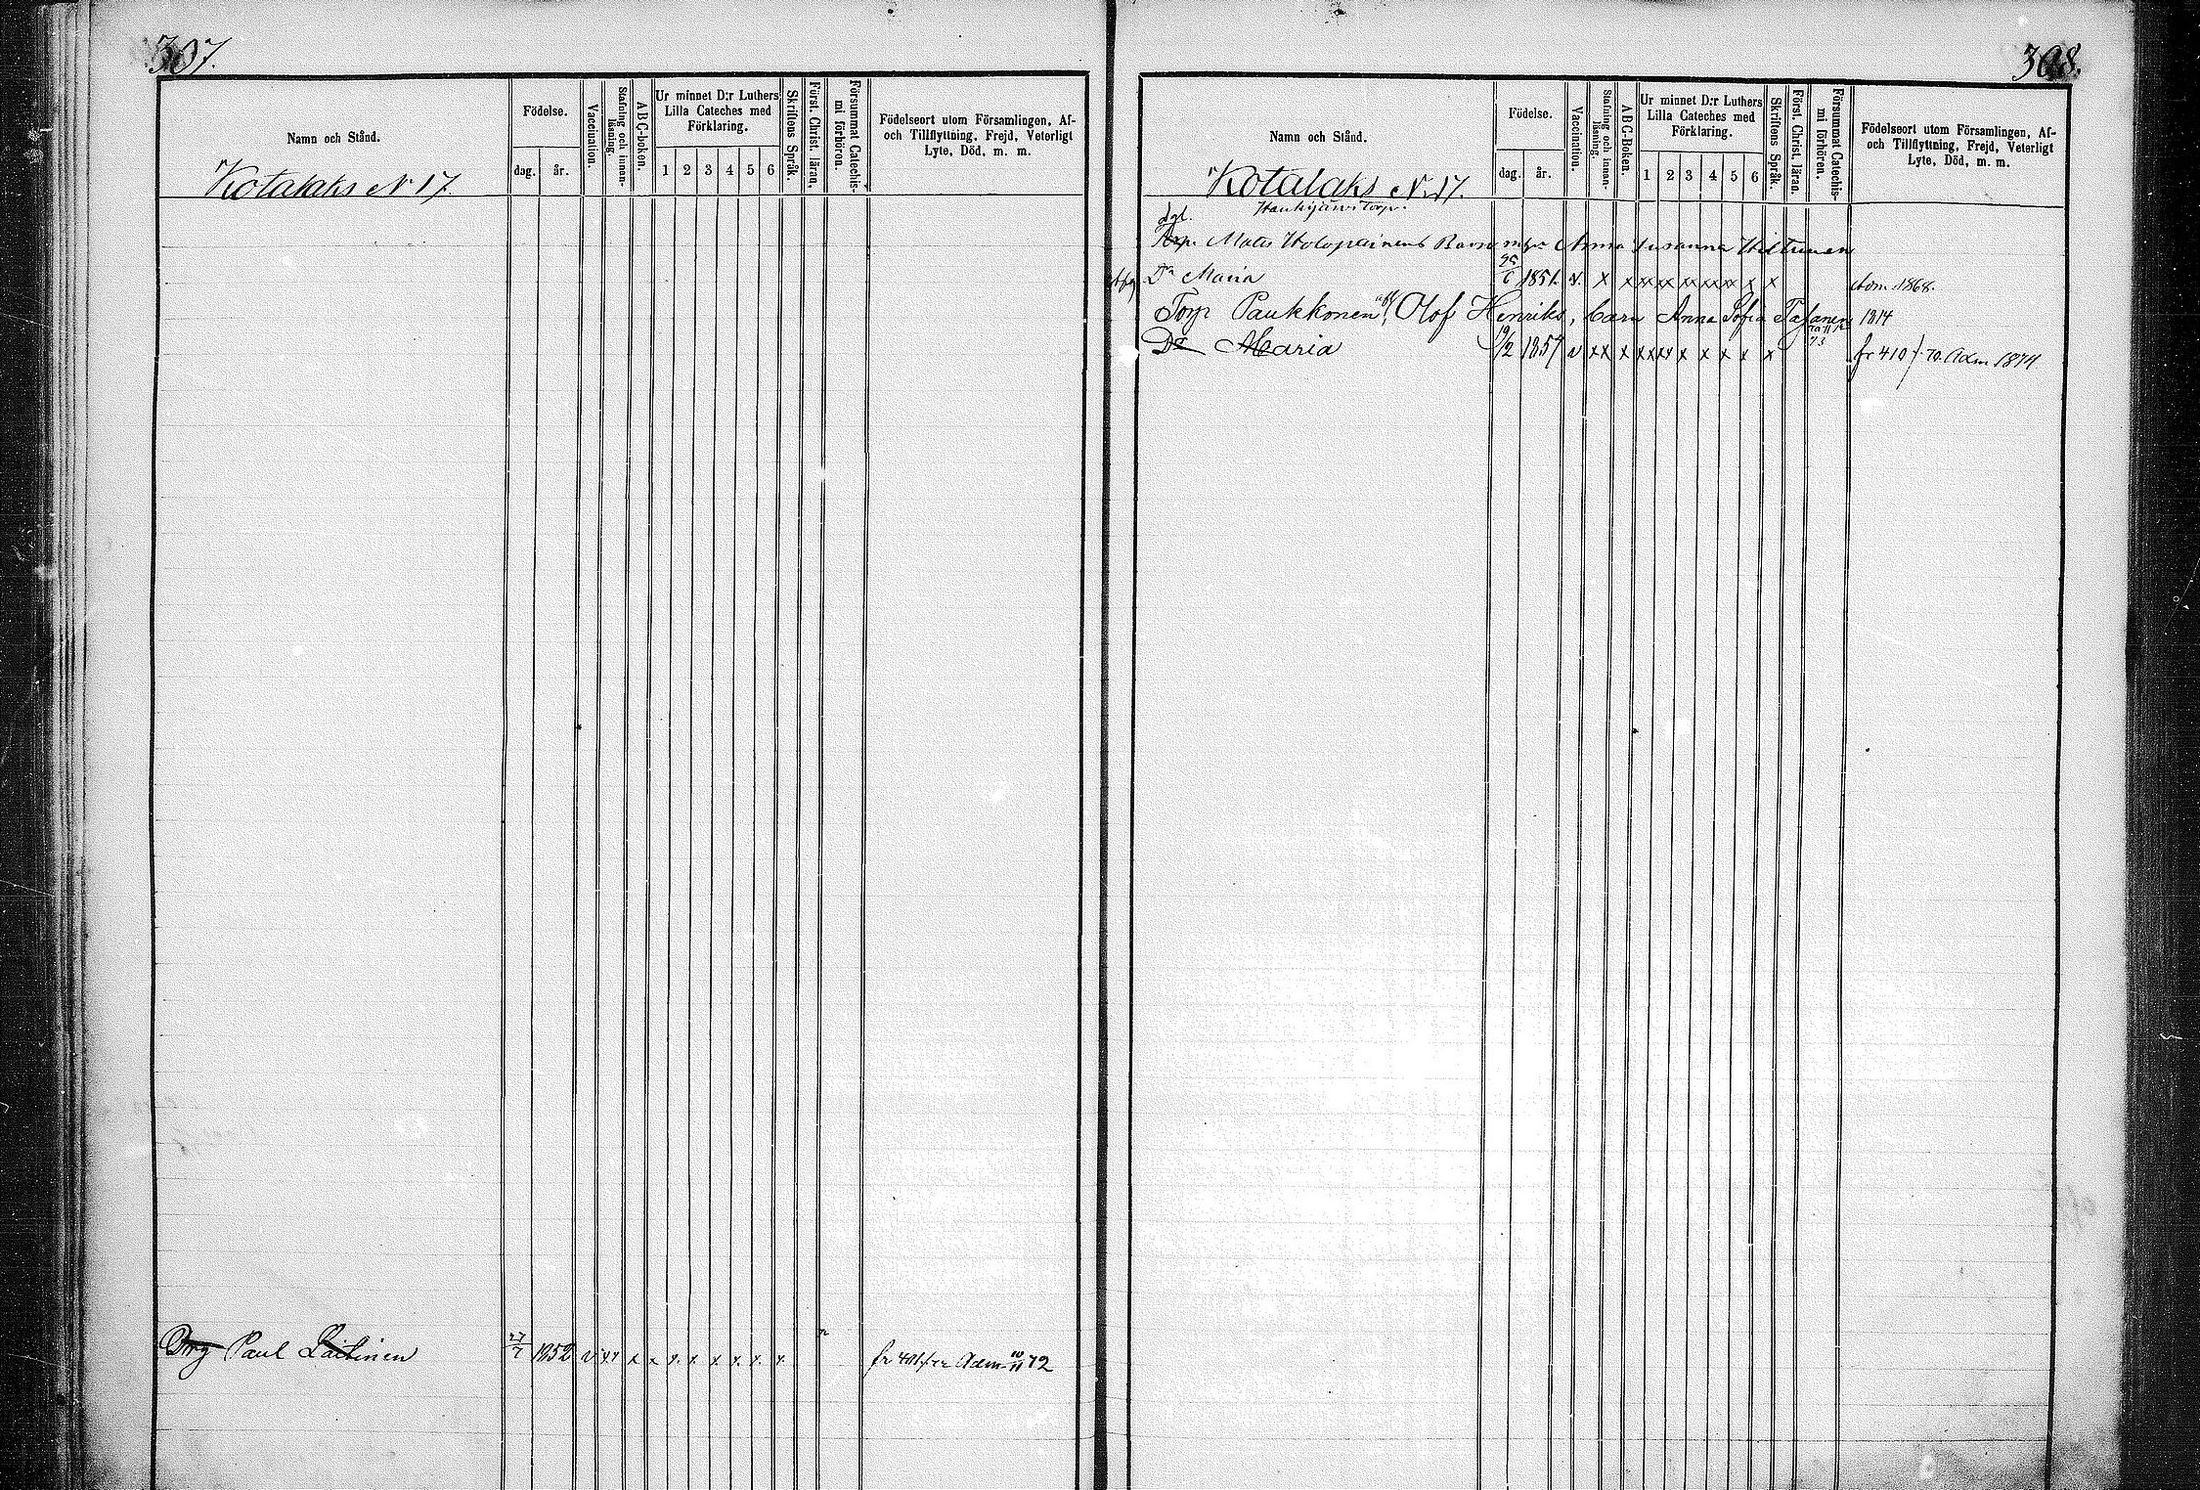 307.
Namn och Stånd.
Födelse.
dag.
år.
Vaccination.
Stafning och innan-
läsning.
ABC-boken.
Ur minnet D:r Luthers
Lilla Cateches med
Förklaring.
1 2 3 4 5 6
Skriftens Språk.
Först. Christ. läran.
Försummat Catechis-
mi förhören.
Födelseort utom Församlingen, Af-
och Tillflyttning, Frejd, Veterligt
Lyte, Död, m. m.
Kotalaks N 17.
Paul Laitinen 27/7 1852 v x x x x x x x x x x Adm 10/11 72
308.
Namn och Stånd.
Födelse.
dag.
år.
Vaccination.
Stafning och innan-
läsning.
ABC-Boken.
Ur minnet D:r Luthers
Lilla Cateches med
Förklaring.
1 2 3 4 5 6
Skriftens Språk.
Först. Christ. läran.
Försummat Catechis-
mi förhören.
Födelseort utom Församlingen, Af-
och Tillflyttning, Frejd, Veterligt
Lyte, Död, m. m.
Kotalaks N. 17.
Torp.
Mats Holopainens Barn m Anna Susanna Hiltunen
Dr Maria 1851. v. x x xx xx xx xx x x x 1868.
Torp Paukkonen, Olof Henriks, barn Anna Sofia 1814
Dr Maria 19/2 1857 v xx x xx xx x x x x x fr 410 / 70. Adm 1874